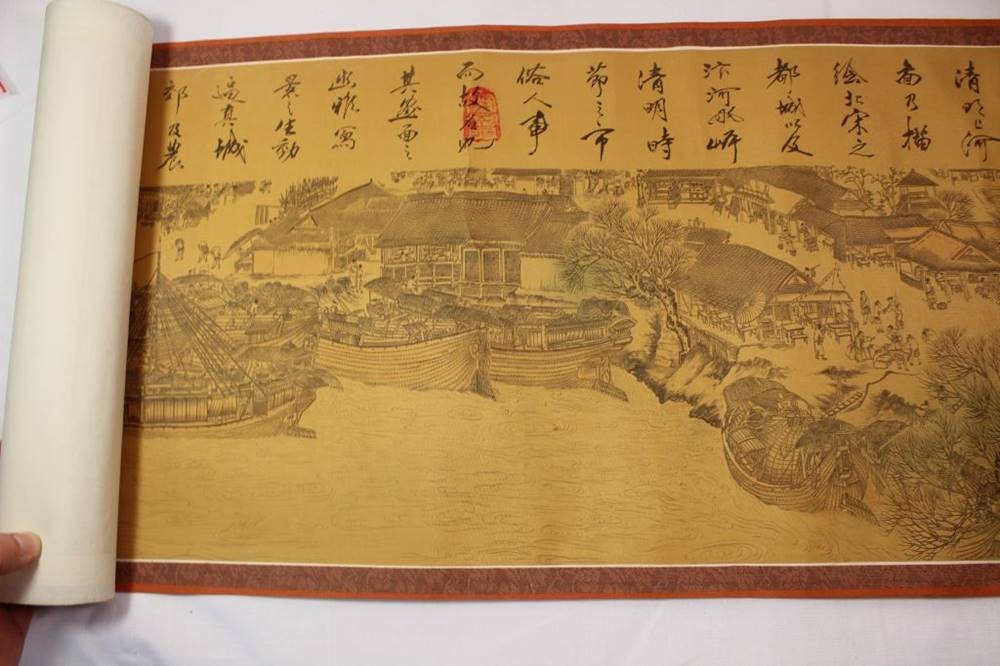 清明上河
圖乃描
绘北宋之
都城以及
汴河两岸
清明時
節之市
俗人事
而故名也
其畫之
幽雅寫
景之生動
逼真城
郊及農